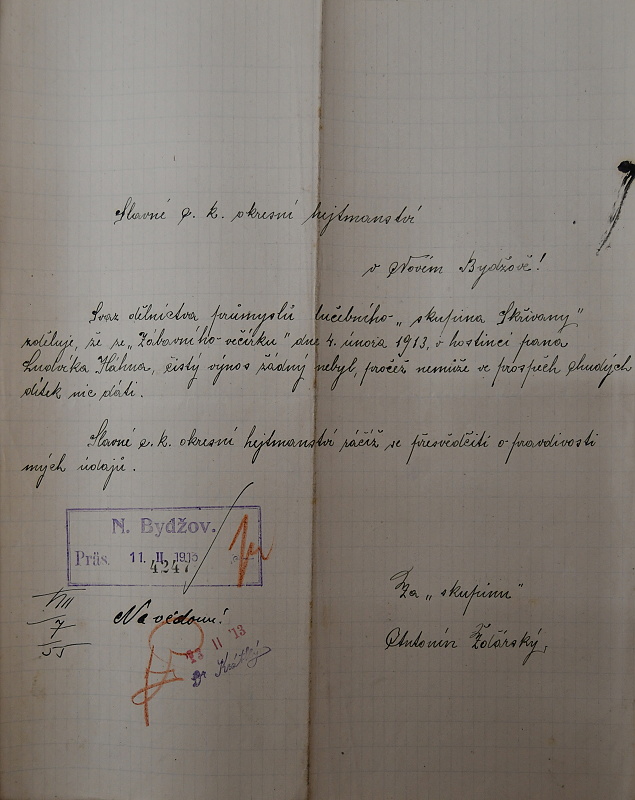 Slavné c. k. okresní hejtmanství
v Novém Bydžově!
Svaz dělnictva průmyslu lučebního „skupina Skřivany"
zděluje, že ze „Zábavního večírku" dne 4. února 1913, v hostinci pana
Ludvíka Háhna, čistý výnos žádný nebyl, pročež nemůže ve prospěch chudých
dítek nic dáti.
Slavné c. k. okresní hejtmanství ráčíž se přesvědčiti o pravdivosti
mých údajů.
N. Bydžov.
Präs. 11. II. 1913
4247
Za „skupinu"
VIII
Na vědomí!
7
Antonín
13 II '13
55
Dr